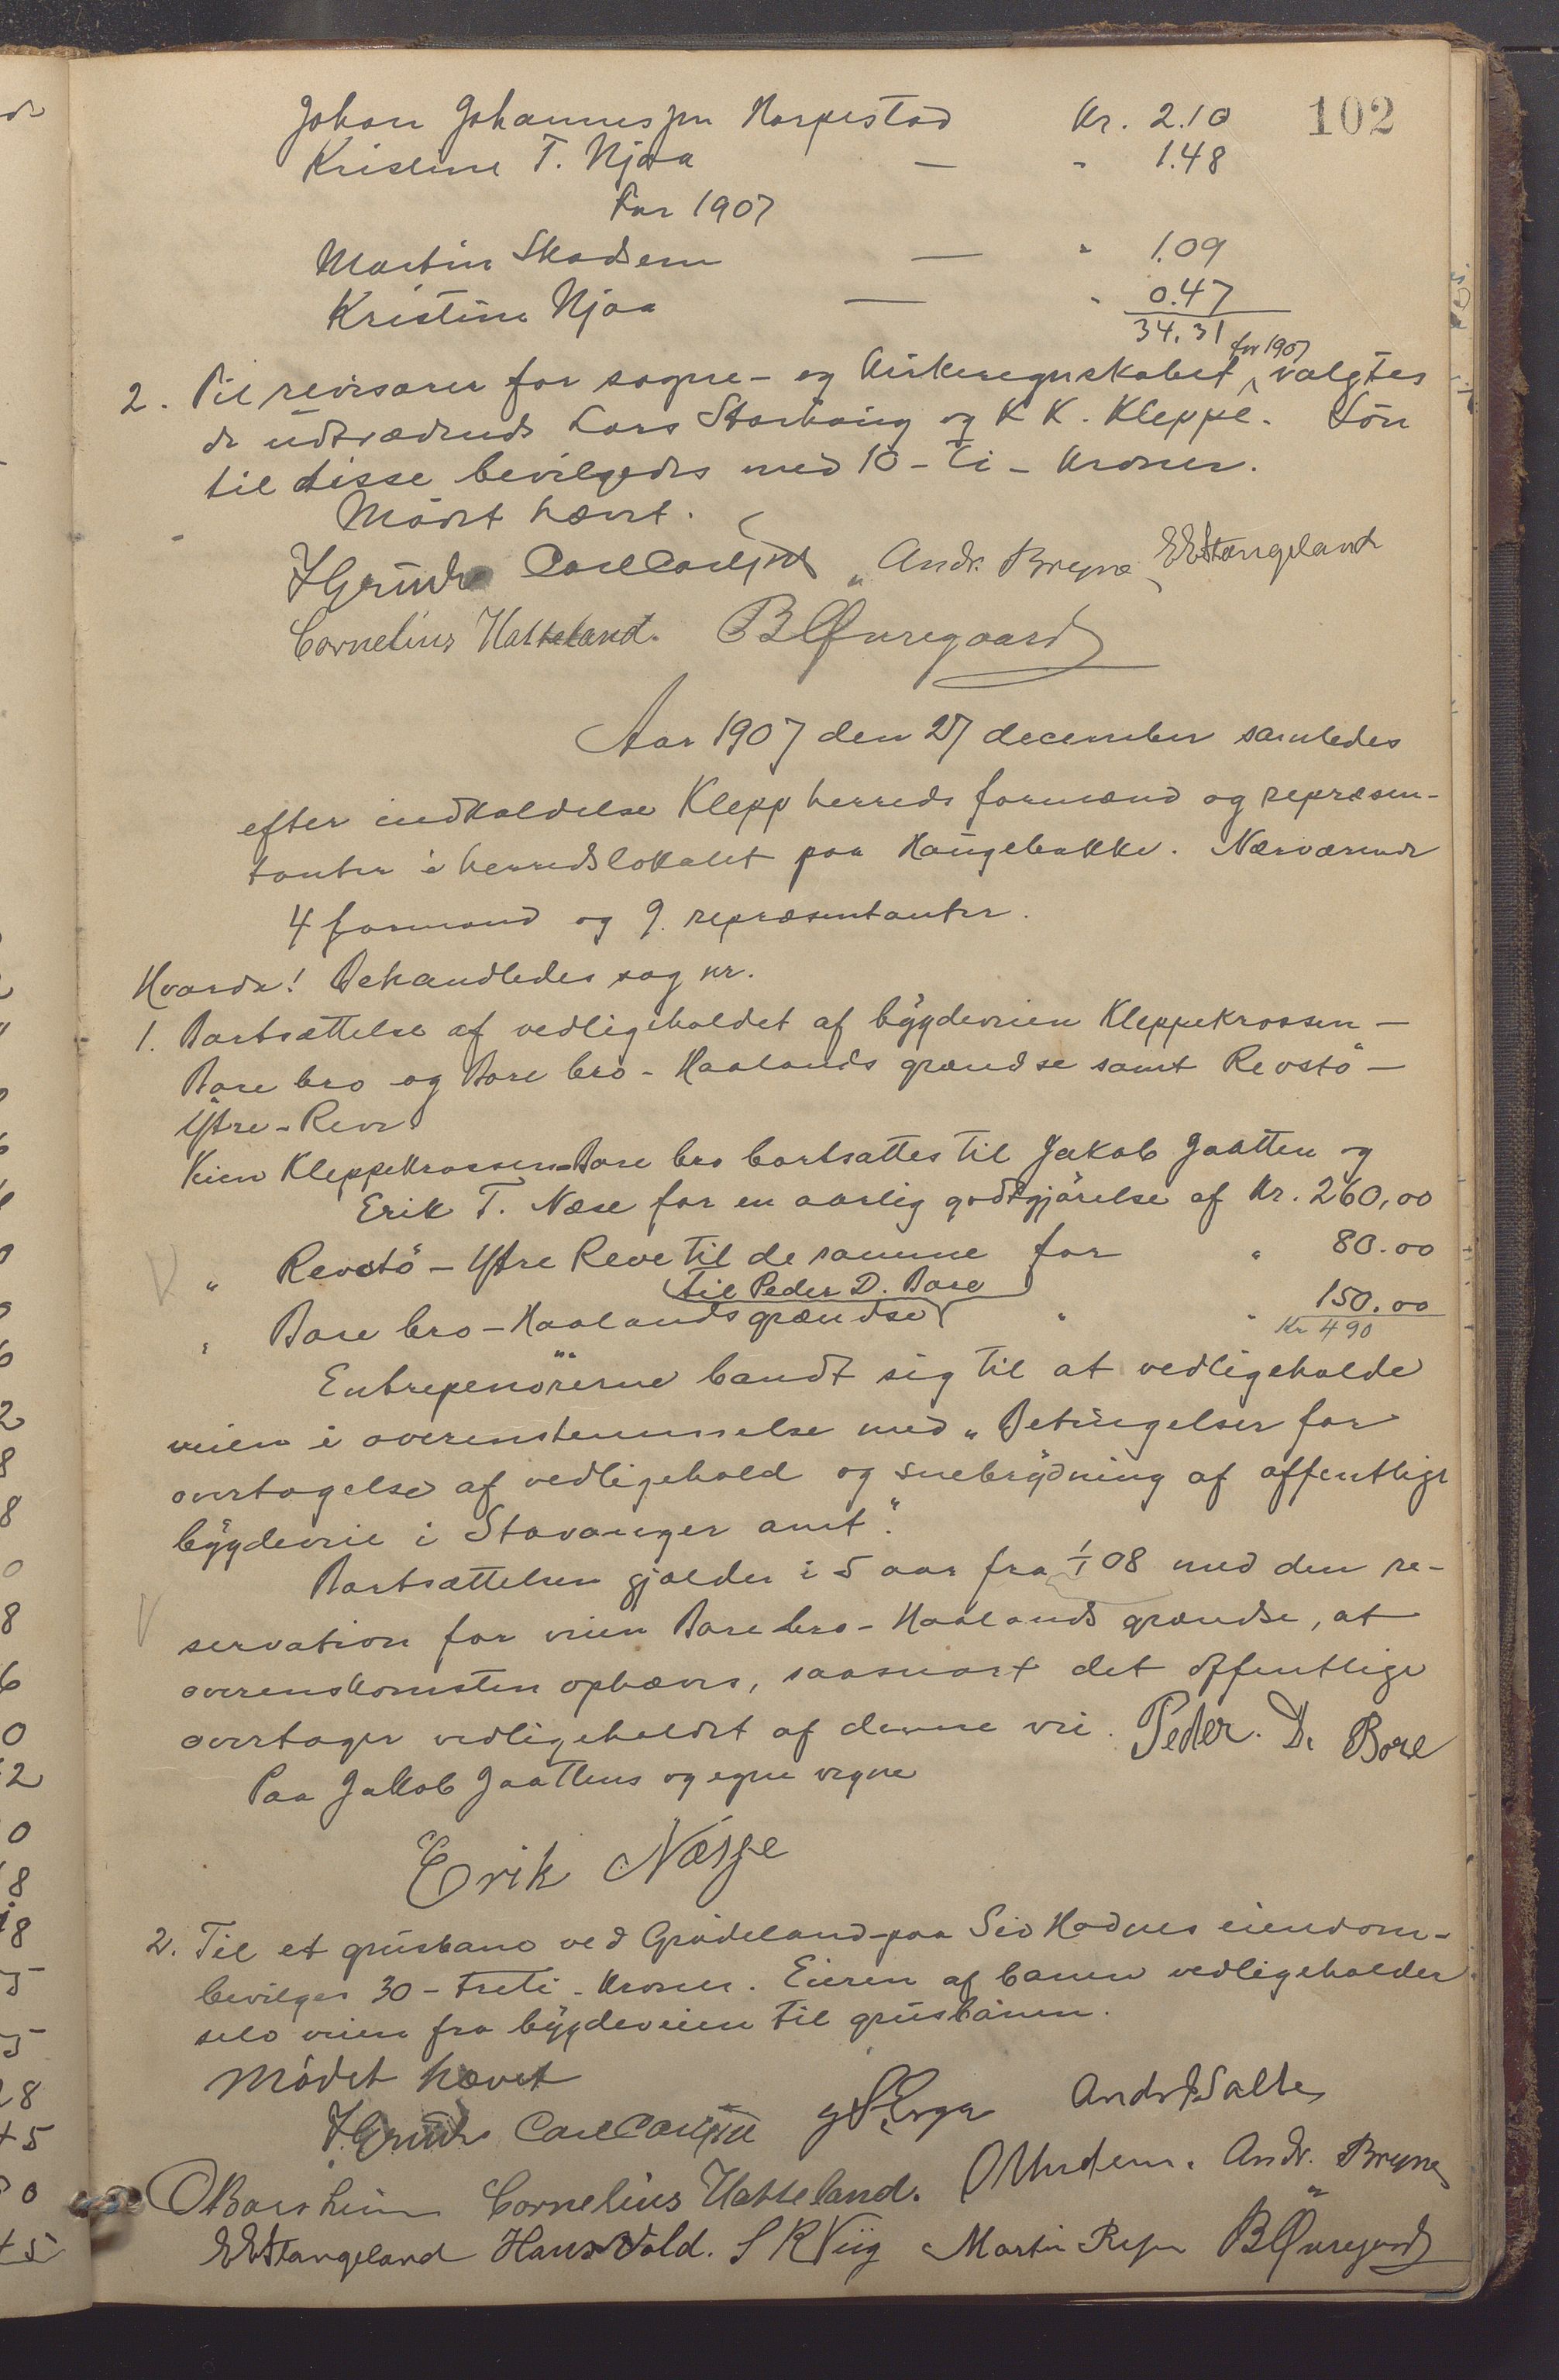 102
Johan Johannesjen Harpestad Kr. 2.10
Kristine T. Njaa — " 1.48
For 1907
Martin Skadsem — " 1.09
Kristine Njaa — " 0.47
34.31
for 1907
2. Til revisorer for sogne- og kirkeregnskabet valgtes
de udtrædende Lars Storhaüg og K K. Kleppe. Løn
til disse bevilgedes med 10 - ti - kroner.
Mødet hævet.
Carl Carlsen Andr. Bryne E E Stangeland
Cornelius Hatteland. B Øvregaard
Aar 1907 den 27 december samledes
efter indkaldelse Klepp herreds formænd og repræsen-
tanter i herredslokalet paa Haügebakke. Nærværende
4 formænd og 9 repræsentanter.
Hvorda! Behandledes sag nr.
1. Bortsættelse af vedligeholdet af bÿgdeveien Kleppekrossen -
Bore bro og Bore bro - Haalands grændse samt Revstø -
Ÿtre - Reve
Veien Kleppekrossen - Bore bro bortsattes til Jakob Jaatten og
Erik T. Næse for en aarlig godtgjørelse af Kr. 260,00
" Revstø - Ÿtre Reve til de samme for " 80.00
til Peder D. Bore
" Bore bro - Haalandsgrændse " " 150.00
Kr 490
Entrepenørerne bandt sig til at vedligeholde
veien i overenstemmelse med „Betingelser for
overtagelse af vedligehold og snebrÿdning af offentlige
bÿgdeveie i Stavanger amt".
Bortsættelsen gjælder i 5 aar fra 1/1 08 med den re-
servation for veien Bore bro - Haalands grændse, at
overenskomsten ophæves, saasnart det offentlige
overtager vedligeholdet af denne vei. Peder. D. Bore
Paa Jakob Jaattens og egne vegne
Erik Næsse
2. Til et grüstano ved Grüdeland - paa Siv Hodnes eiendom -
bevilges 30 - treti - kroner. Eieren af banen vedligeholder
selv veien fra bÿgdeveien til grüsbanen.
Mødet hævet
Carl Carlsen Erga Andr Salte
O Borsheim Cornelius Hatteland. Andr. Bryne
E E Stangeland Hans Vold. S R Viig Martin B Øvregaard